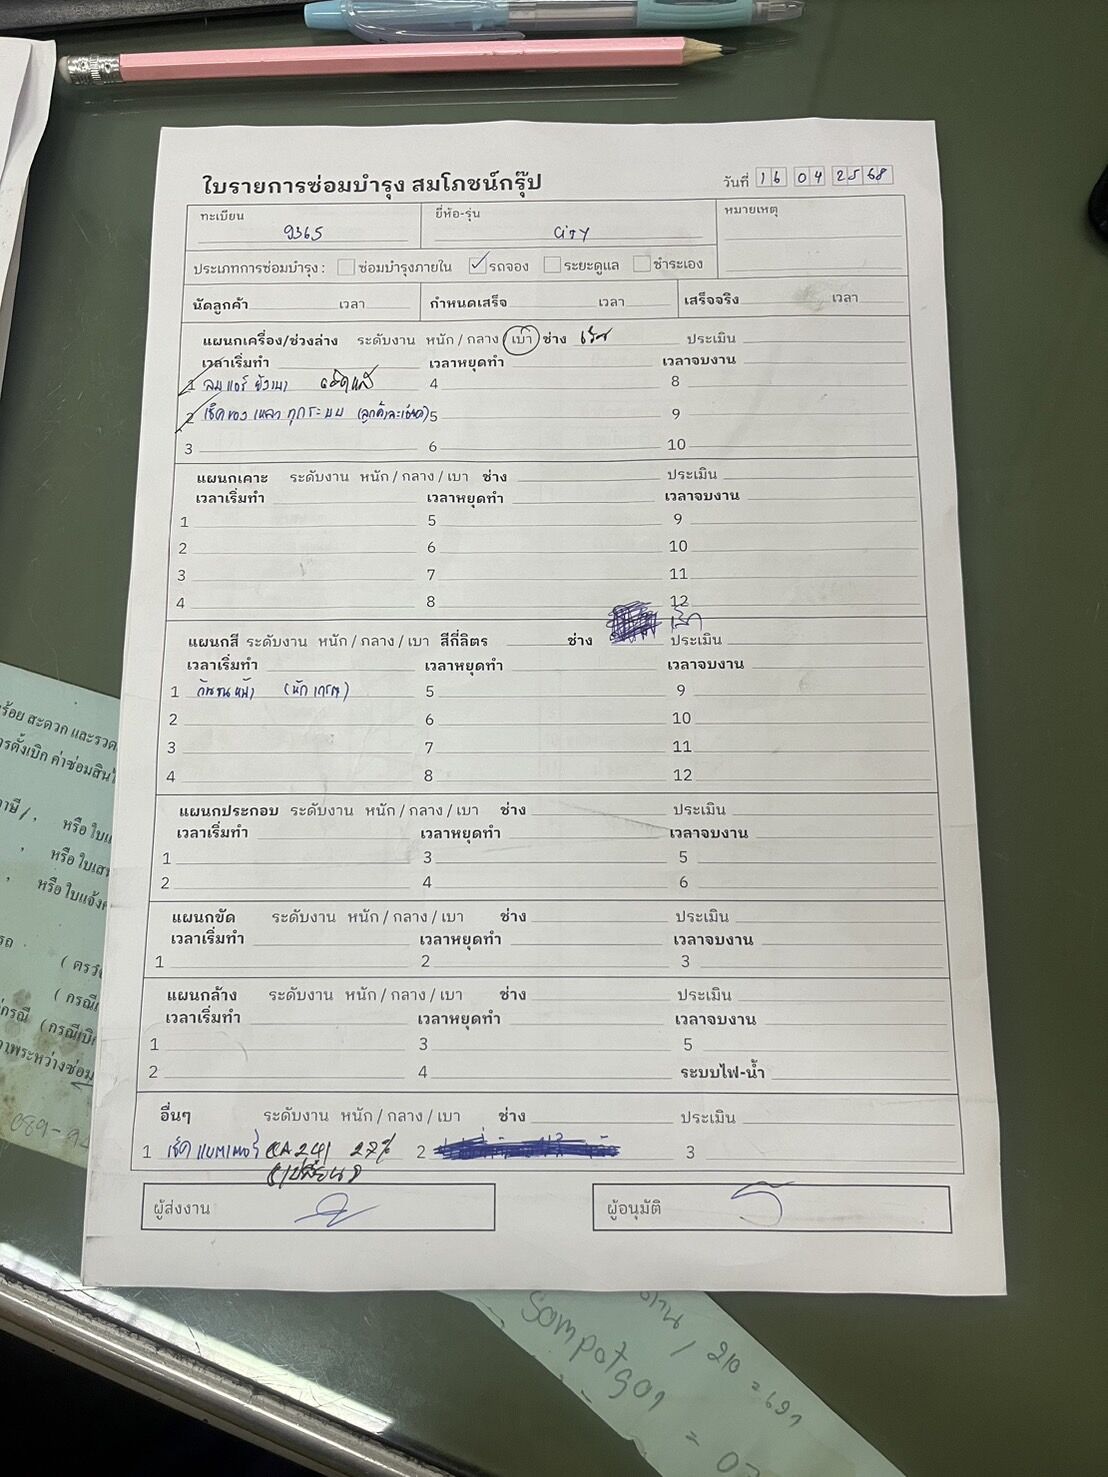 ใบรายการซ่อมบำรุง สมโภชน์กรุ๊ป
วันที่ 16 04 2568
ทะเบียน ยี่ห้อ-รุ่น หมายเหตุ
9365 City
ประเภทการซ่อมบำรุง : ซ่อมบำรุงภายใน ✓ รถจอง ระยะดูแล ชำระเอง
นัดลูกค้า เวลา กำหนดเสร็จ เวลา เสร็จจริง เวลา
แผนกเครื่อง/ช่วงล่าง ระดับงาน หนัก / กลาง / เบา ช่าง ประเมิน
เวลาเริ่มทำ เวลาหยุดทำ เวลาจบงาน
1 ลมแอร์ 4 8
2 เช็คของเหลวทุกระบบ 5 9
3 6 10
แผนกเคาะ ระดับงาน หนัก / กลาง / เบา ช่าง ประเมิน
เวลาเริ่มทำ เวลาหยุดทำ เวลาจบงาน
1 5 9
2 6 10
3 7 11
4 8 12
แผนกสี ระดับงาน หนัก / กลาง / เบา สีกี่ลิตร ช่าง ประเมิน
เวลาเริ่มทำ เวลาหยุดทำ เวลาจบงาน
1 กันชนหน้า 5 9
2 6 10
3 7 11
4 8 12
แผนกประกอบ ระดับงาน หนัก / กลาง / เบา ช่าง ประเมิน
เวลาเริ่มทำ เวลาหยุดทำ เวลาจบงาน
1 3 5
2 4 6
แผนกขัด ระดับงาน หนัก / กลาง / เบา ช่าง ประเมิน
เวลาเริ่มทำ เวลาหยุดทำ เวลาจบงาน
1 2 3
แผนกล้าง ระดับงาน หนัก / กลาง / เบา ช่าง ประเมิน
เวลาเริ่มทำ เวลาหยุดทำ เวลาจบงาน
1 3 5
2 4 ระบบไฟ-น้ำ
อื่นๆ ระดับงาน หนัก / กลาง / เบา ช่าง ประเมิน
1 เช็คแบตเตอรี่ CA 241 27% 2 3
ผู้ส่งงาน ผู้อนุมัติ
ร้อย สะดวก และรวด
ารตั้งเบิก ค่าซ่อมสิน
าษี/, หรือ ใบ
, หรือ ใบเส
, หรือ ใบแจ้ง
รถ
( ตรว
( กรณี
กรณี (กรณีเบิก
าพระหว่างซ่อม
089-9
/ 210 = 697
Sompotgor = 07